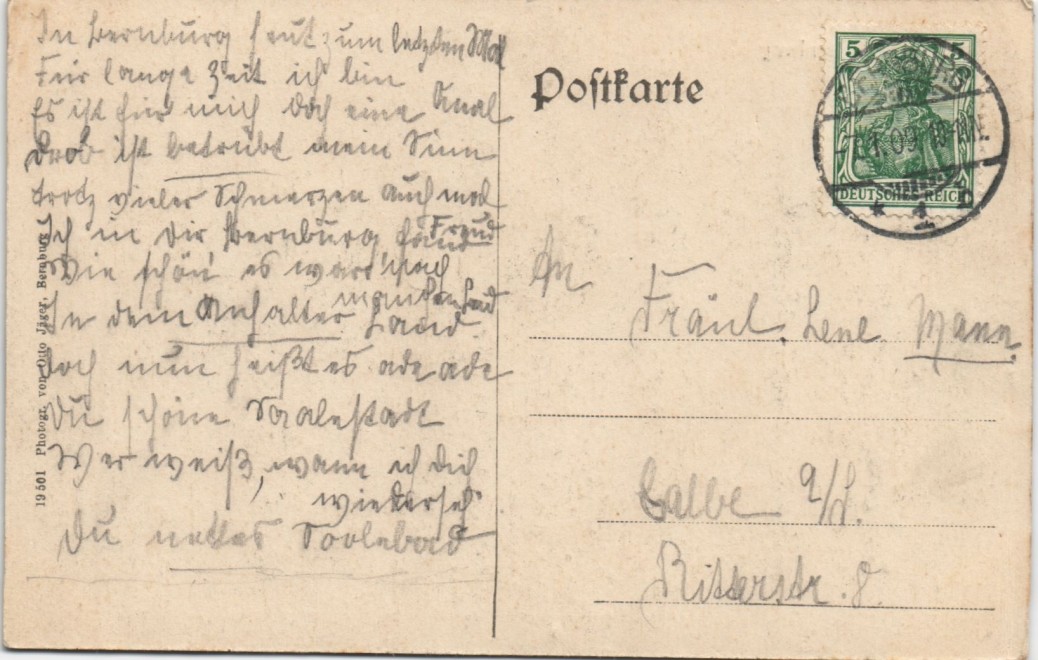 In Bernburg heut zum letzten Mal
Für lange Zeit ich bin
Es ist für mich doch eine Qual
Drob ist betrübt mein Sinn
trotz vieler Schmerzen auch mal Freud
Ich in Dir Bernburg fand
Wie schön es war
In dem Anhalter Land
Doch nun heißt es ade ade
Du schöne Saalestadt
Wer weiß, wann ich Dich wiederseh
Du nettes Soolebad
19501 Photogr. von Otto Jäger, Bernburg
Postkarte
5 5
DEUTSCHES REICH
BERNBURG
An
Fräul. Lene Mann.
Calbe a/S.
Ritterstr. 8.